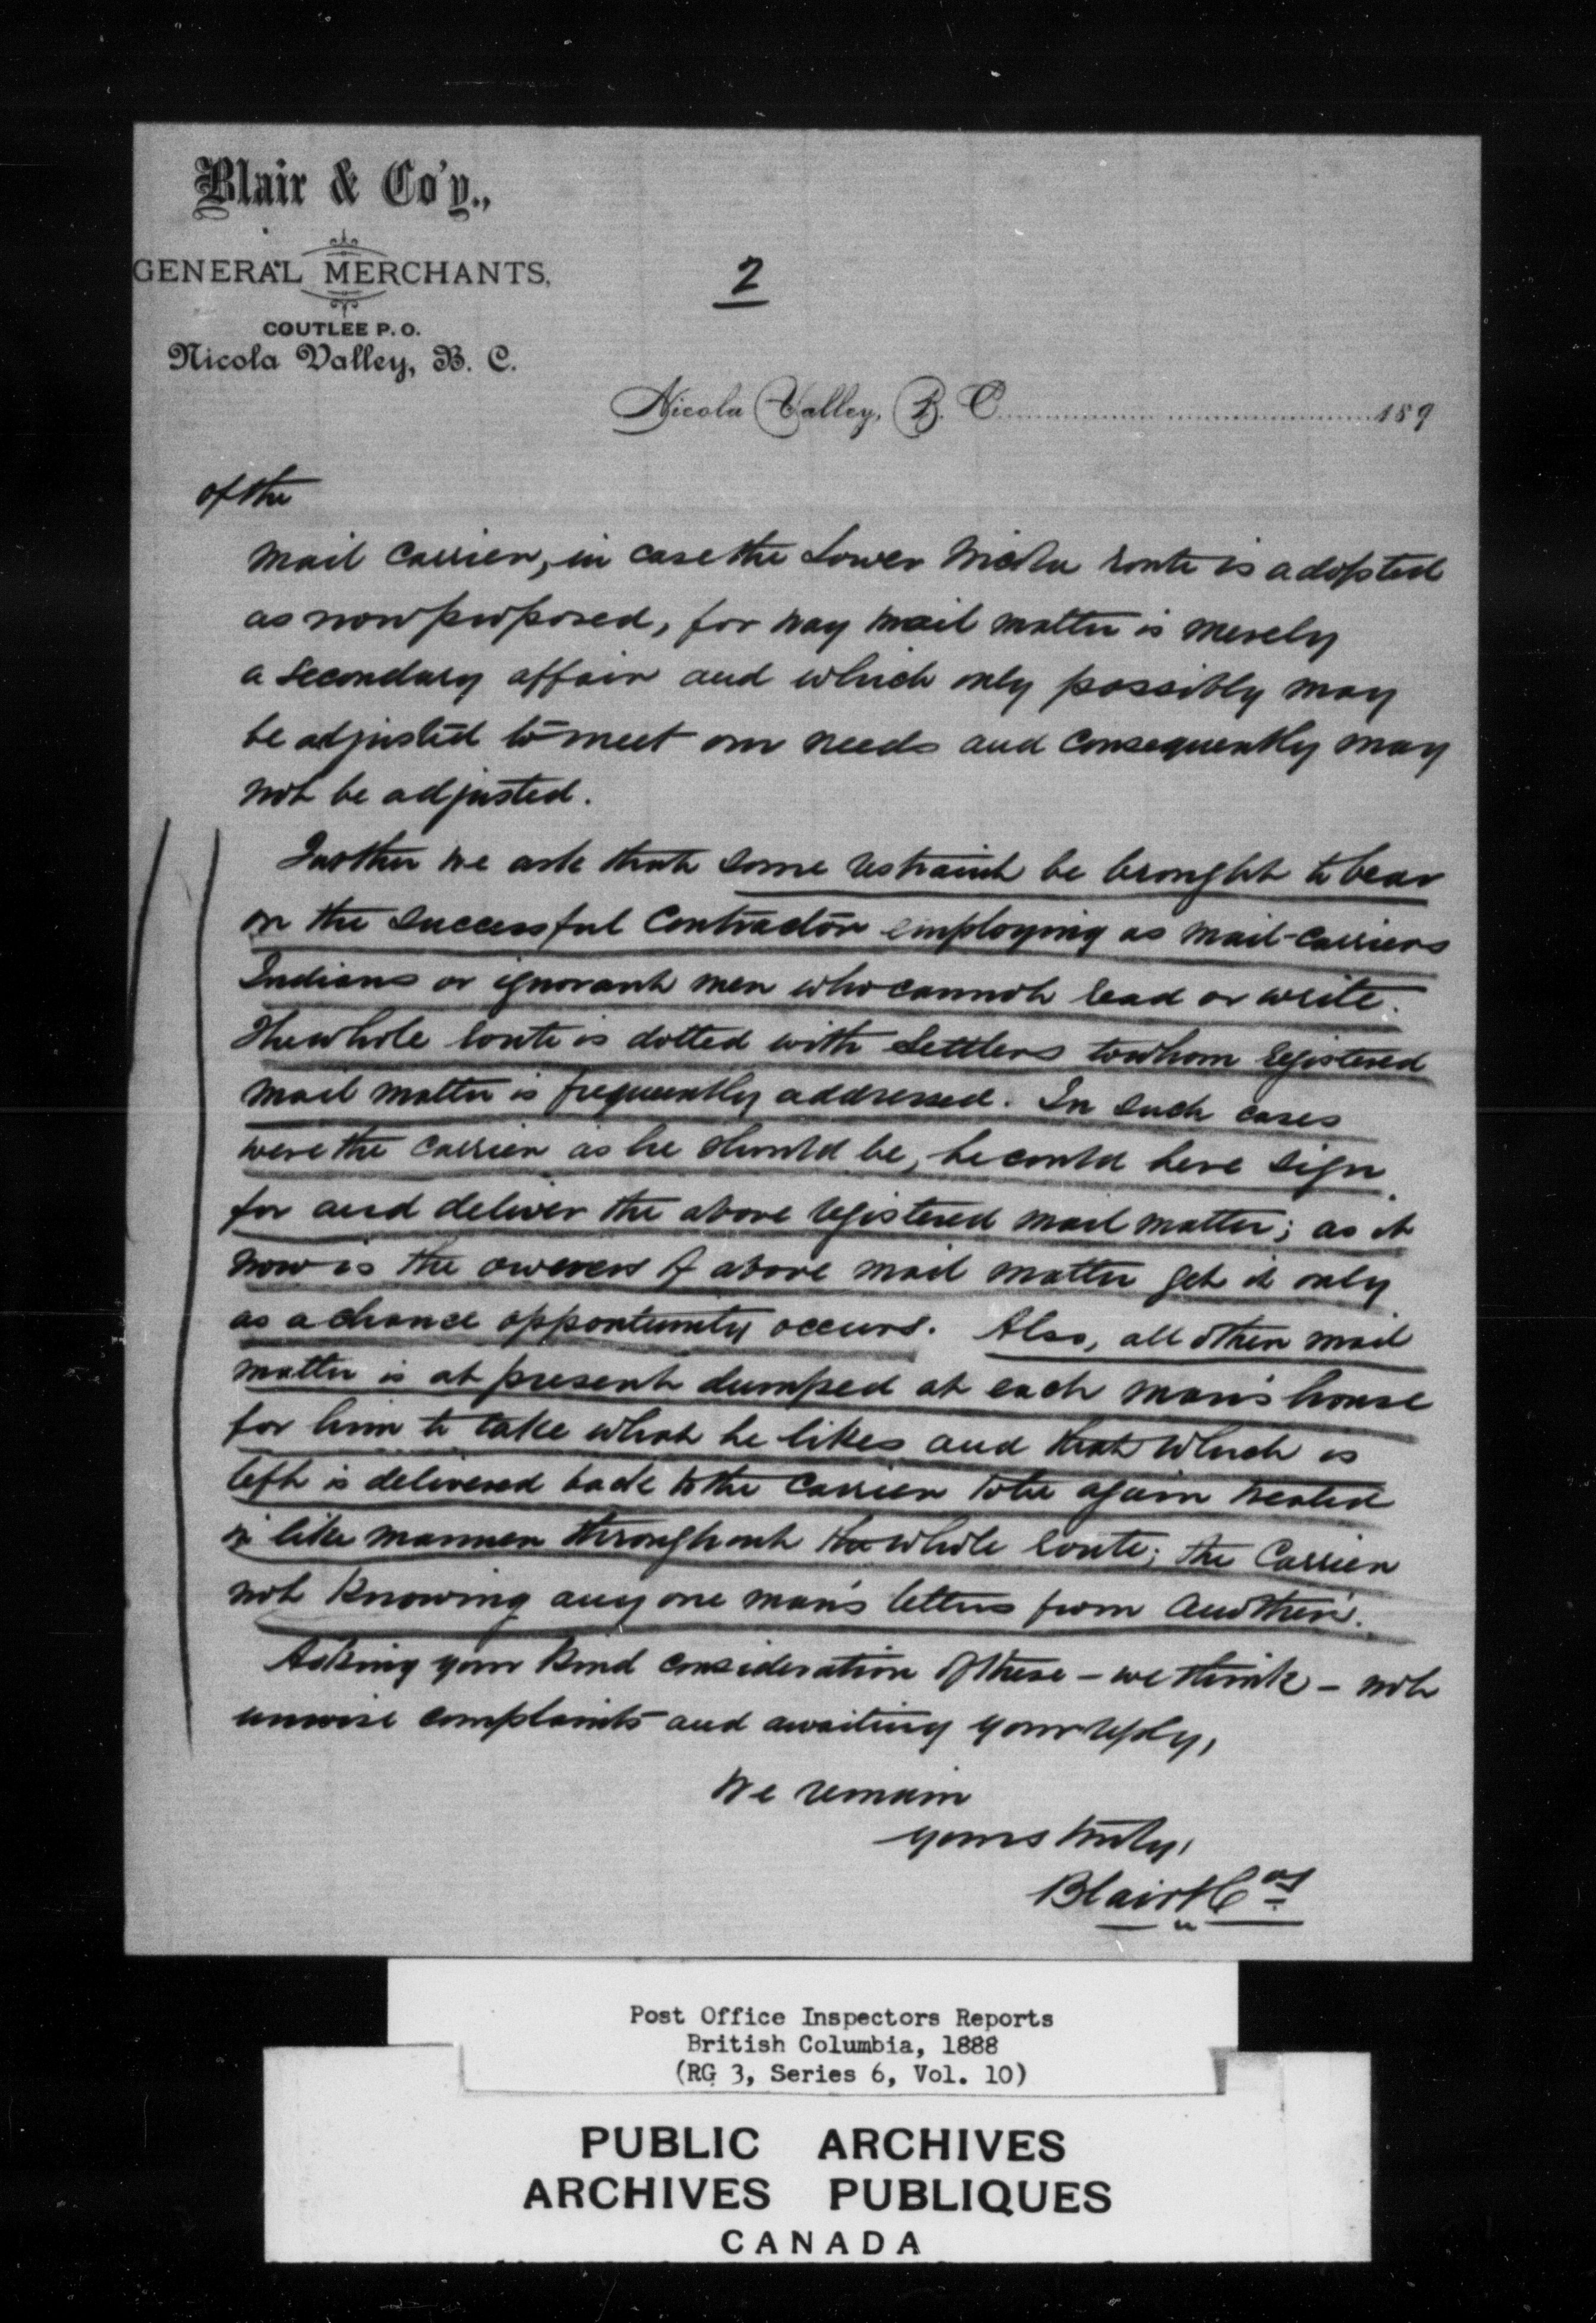 Blair & Co'y.,
GENERAL MERCHANTS,
COUTLEE P. O.
Nicola Valley, B. C.
2
Nicola Valley, B. C. 189
of the
mail carrier, in case the Lower Nicola route is adopted
as now proposed, for way mail matter is merely
a secondary affair and which only possibly may
be adjusted to meet our needs and consequently may
not be adjusted.
Further we ask that some restraint be brought to bear
on the successful Contractor employing as mail-carriers
Indians or ignorant men who cannot read or write.
The whole route is dotted with settlers to whom registered
mail matter is frequently addressed. In such cases
were the carrier as he should be, he could here sign
for and deliver the above registered mail matter; as it
now is the oweners of above mail matter get it only
as a chance opportunity occurs. Also, all other mail
matter is at present dumped at each man's house
for him to take what he likes and that which is
left is delivered back to the carrier to be again treated
in like manner throughout the whole route; the Carrier
not knowing any one man's letters from another's.
Asking your kind consideration of these – we think – not
unwise complaints and awaiting your reply,
We remain
yours truly,
Blair & Coy
Post Office Inspectors Reports
British Columbia, 1888
(RG 3, Series 6, Vol. 10)
PUBLIC ARCHIVES
ARCHIVES PUBLIQUES
CANADA